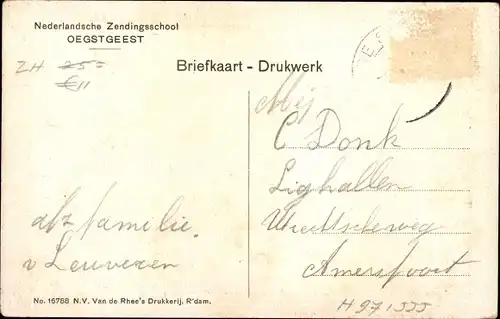 Nederlandsche Zendingsschool
OEGSTGEEST
ZH 25=
€11
Briefkaart - Drukwerk
Mej
C Donk
Lighallen
Utrechtscheweg
Amersfoort
afz familie
v Leuveren
No. 16788 N.V. Van de Rhee's Drukkerij, R'dam.
H 971555